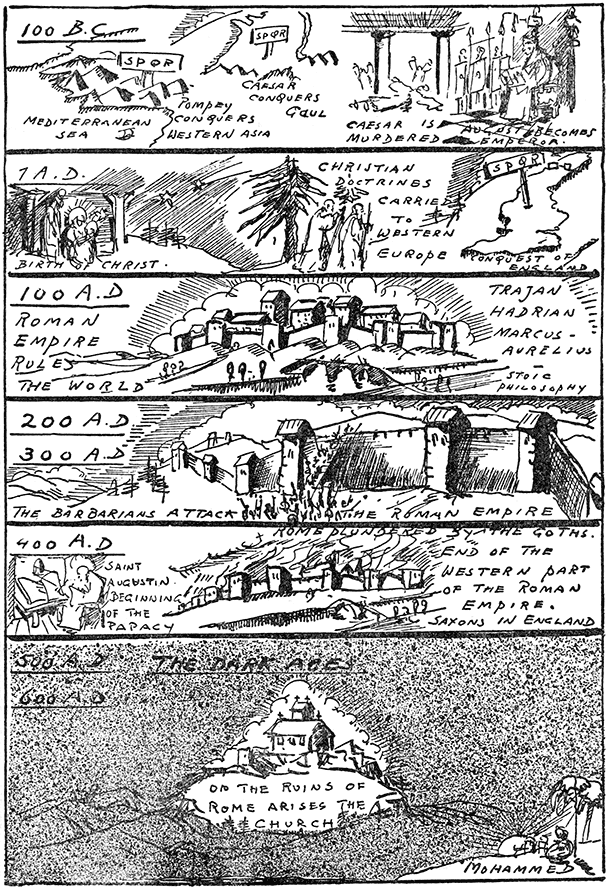 100 B.C
SPQR
SPQR
MEDITERRANEAN
SEA
POMPEY
CONQUERS
WESTERN ASIA
CAESAR
CONQUERS
GAUL
CAESAR IS
MURDERED
AUGUST BECOMES
EMPEROR.
1 A.D.
BIRTH OF CHRIST.
CHRISTIAN
DOCTRINES
CARRIED
TO
WESTERN
EUROPE
SPQR
CONQUEST OF
ENGLAND
100 A.D
ROMAN
EMPIRE
RULES
THE WORLD
TRAJAN
HADRIAN
MARCUS-
AURELIUS
–
STOIC
PHILOSOPHY
200 A.D
300 A.D
THE BARBARIANS ATTACK THE ROMAN EMPIRE
400 A.D
SAINT
AUGUSTIN.
BEGINNING
OF THE
PAPACY
ROME PLUNDERED BY THE GOTHS.
END OF THE
WESTERN PART
OF THE ROMAN
EMPIRE.
SAXONS IN ENGLAND
500 A.D THE DARK AGES
600 A.D
ON THE RUINS OF
ROME ARISES THE
CHURCH
MOHAMMED